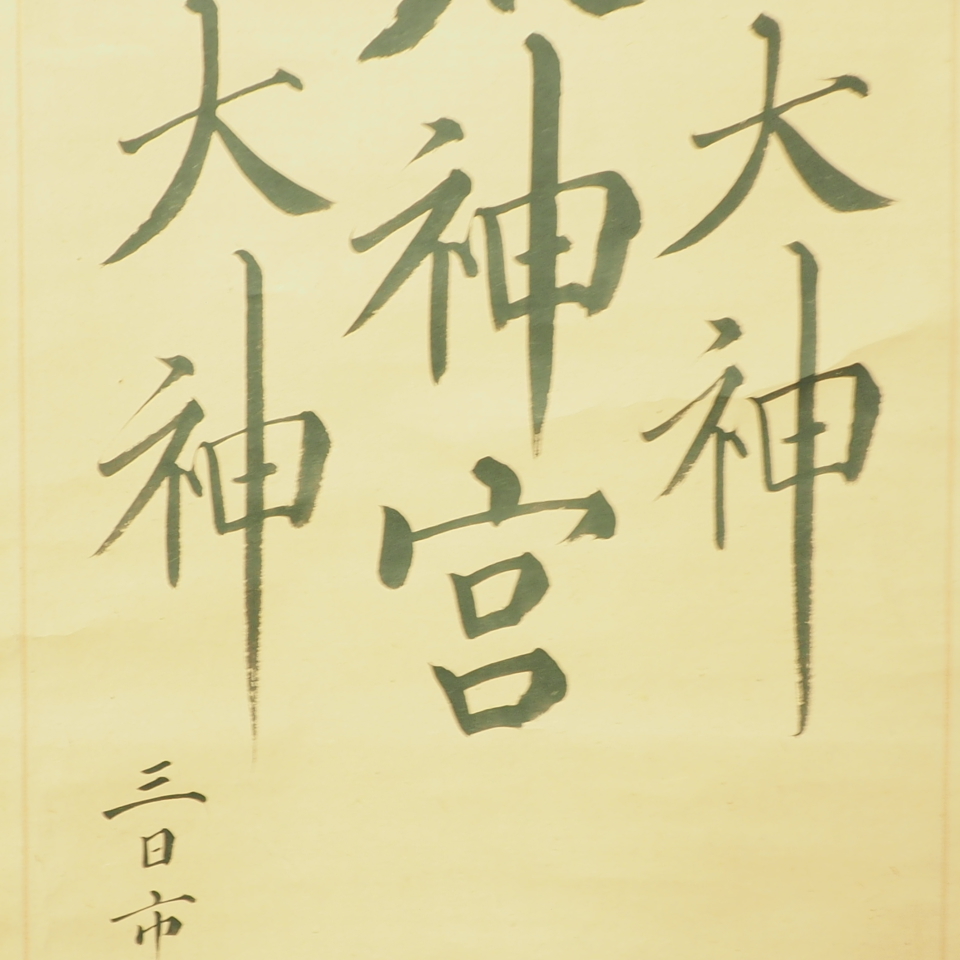 大神
神宮
大神
三日市